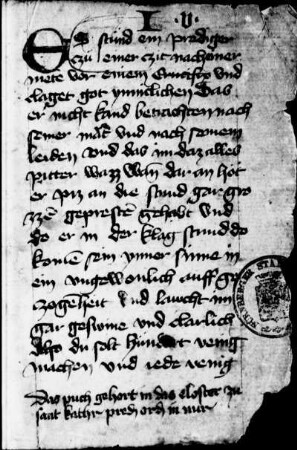 I. V.
ES stund ein prediger
czu einer czit nach einer
mete vor einem Crucifix vnd
claget got ynniclichen Das
er nicht kand betrachten nach
seiner mar vnd nach seinem
leiden Vnd das im daz alles
pitter waz wan dar an hot
er piz an die stund gar gro
zzen gepresten gehabt Vnd
do er in der klag stund do
komen sein ynner sinne in
ein vngewonlich auff ge
zogeheit Vnd laucht im
gar geswine vnd clarlich
Also du solt hundert venig
machen vnd iede venig
Das puch gehort in das closter zu
sant kathr pred ord in nur